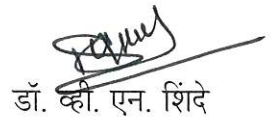 डॉ. व्ही. एन. शिंदे